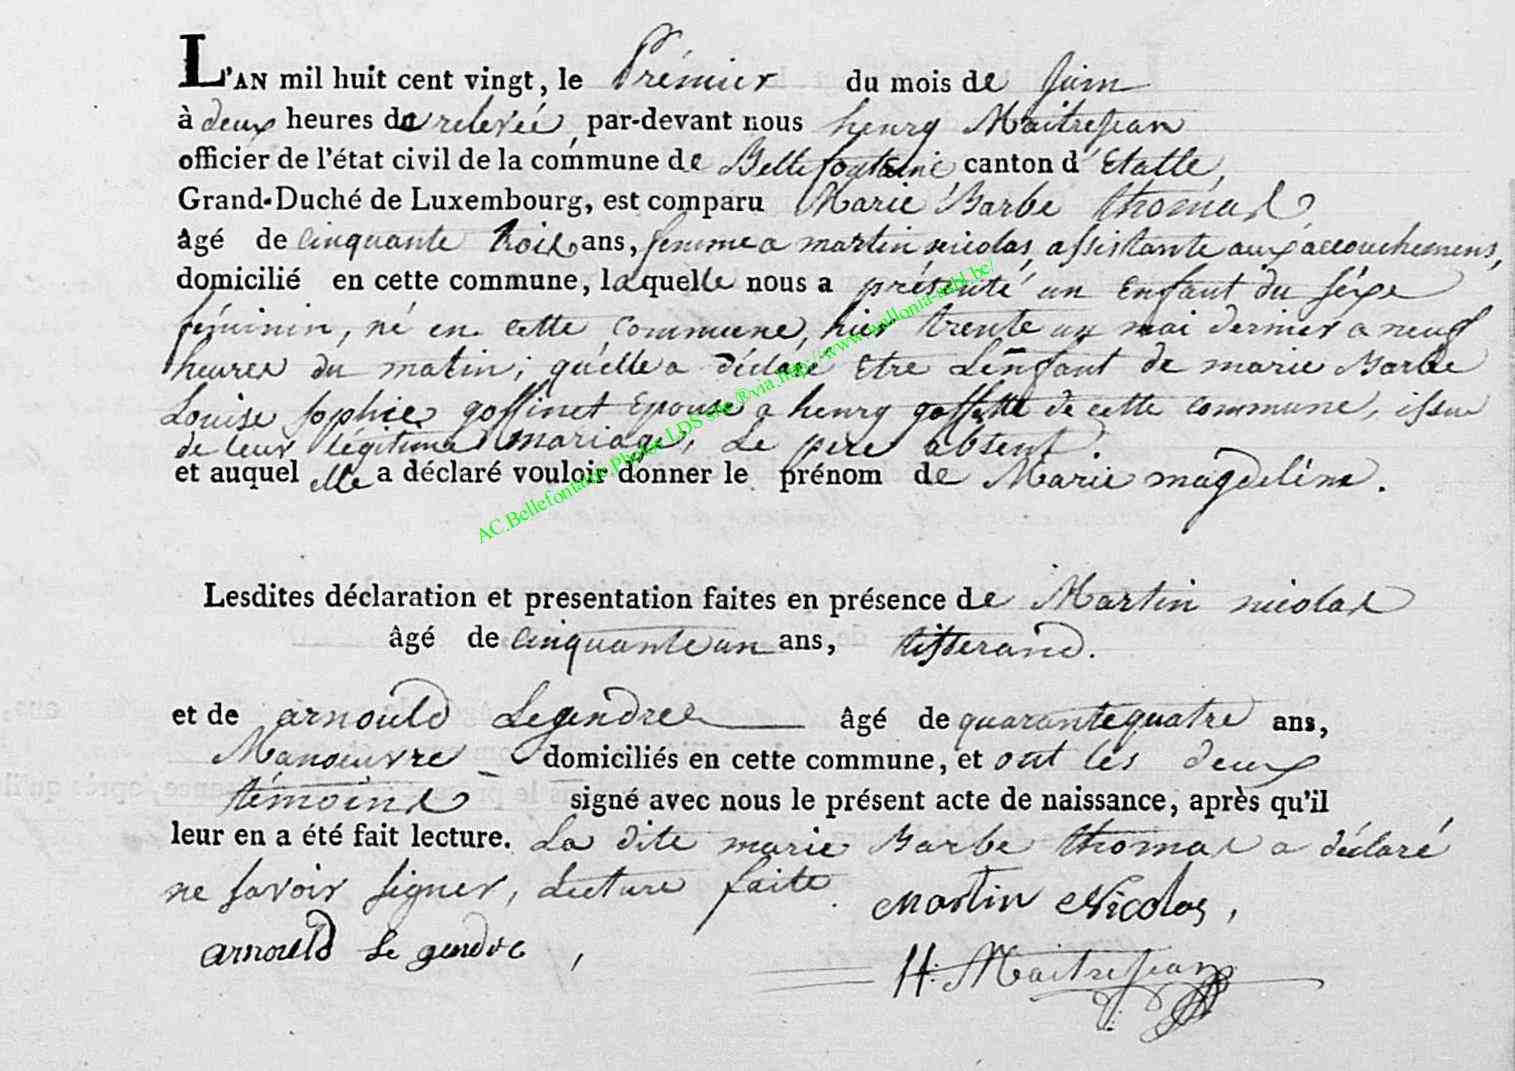 L'AN mil huit cent vingt, le Prémier du mois de Juin
à deux heures de relevée par-devant nous henry Maitrejean
officier de l'état civil de la commune de Bellefontaine canton d'Etalle,
Grand-Duché de Luxembourg, est comparu Marie Barbe thomas
âgé de cinquante trois ans, femme a martin nicolas, assistante aux accouchemens,
domicilié en cette commune, laquelle nous a présenté un Enfant du séxe
féminin, né en cette commune, hier trente un mai dernier a neuf
heures du matin; qu'elle a déclaré Etre L'enfant de marie Barbe
Louise sophie goffinet Epouse a henry goffette de cette commune, issue
de leur légitime mariage, Le pere absent.
et auquel elle a déclaré vouloir donner le prénom de Marie magdeline.
AC.Bellefontaine.Photos LDS Inc.®via http://www.wallonia-asbl.be/
Lesdites déclaration et presentation faites en présence de Martin nicolas
âgé de cinquante un ans, tisserand.
et de arnould Legendre âgé de quarante quatre ans,
Manoeuvre domiciliés en cette commune, et ont les deux
témoins signé avec nous le présent acte de naissance, après qu'il
leur en a été fait lecture. La dite marie Barbe thomas a déclaré
ne savoir signer, Lecture faite.
Martin Nicolas,
arnould Le gendre,
H. Maitrejean